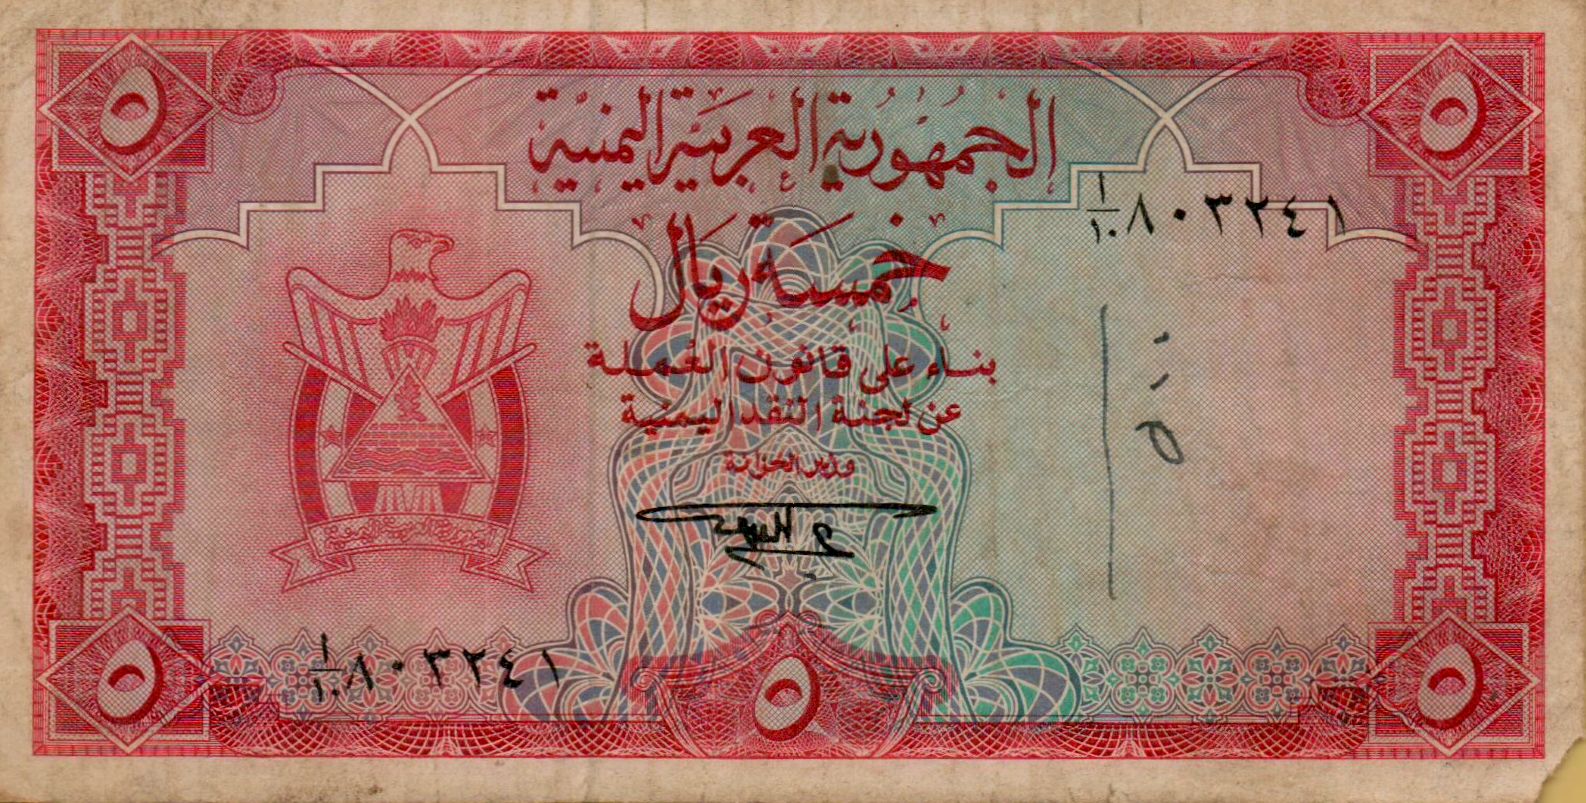 ٥
٥
الجمهورية العربية اليمنية
١/١٠ ٨٠٣٢٤١
خمسة ريال
بناء على قانون العملة
عن لجنة النقد اليمنية
وزير الخزانة
الجمهورية العربية اليمنية
١/١٠ ٨٠٣٢٤١
٥
٥
٥